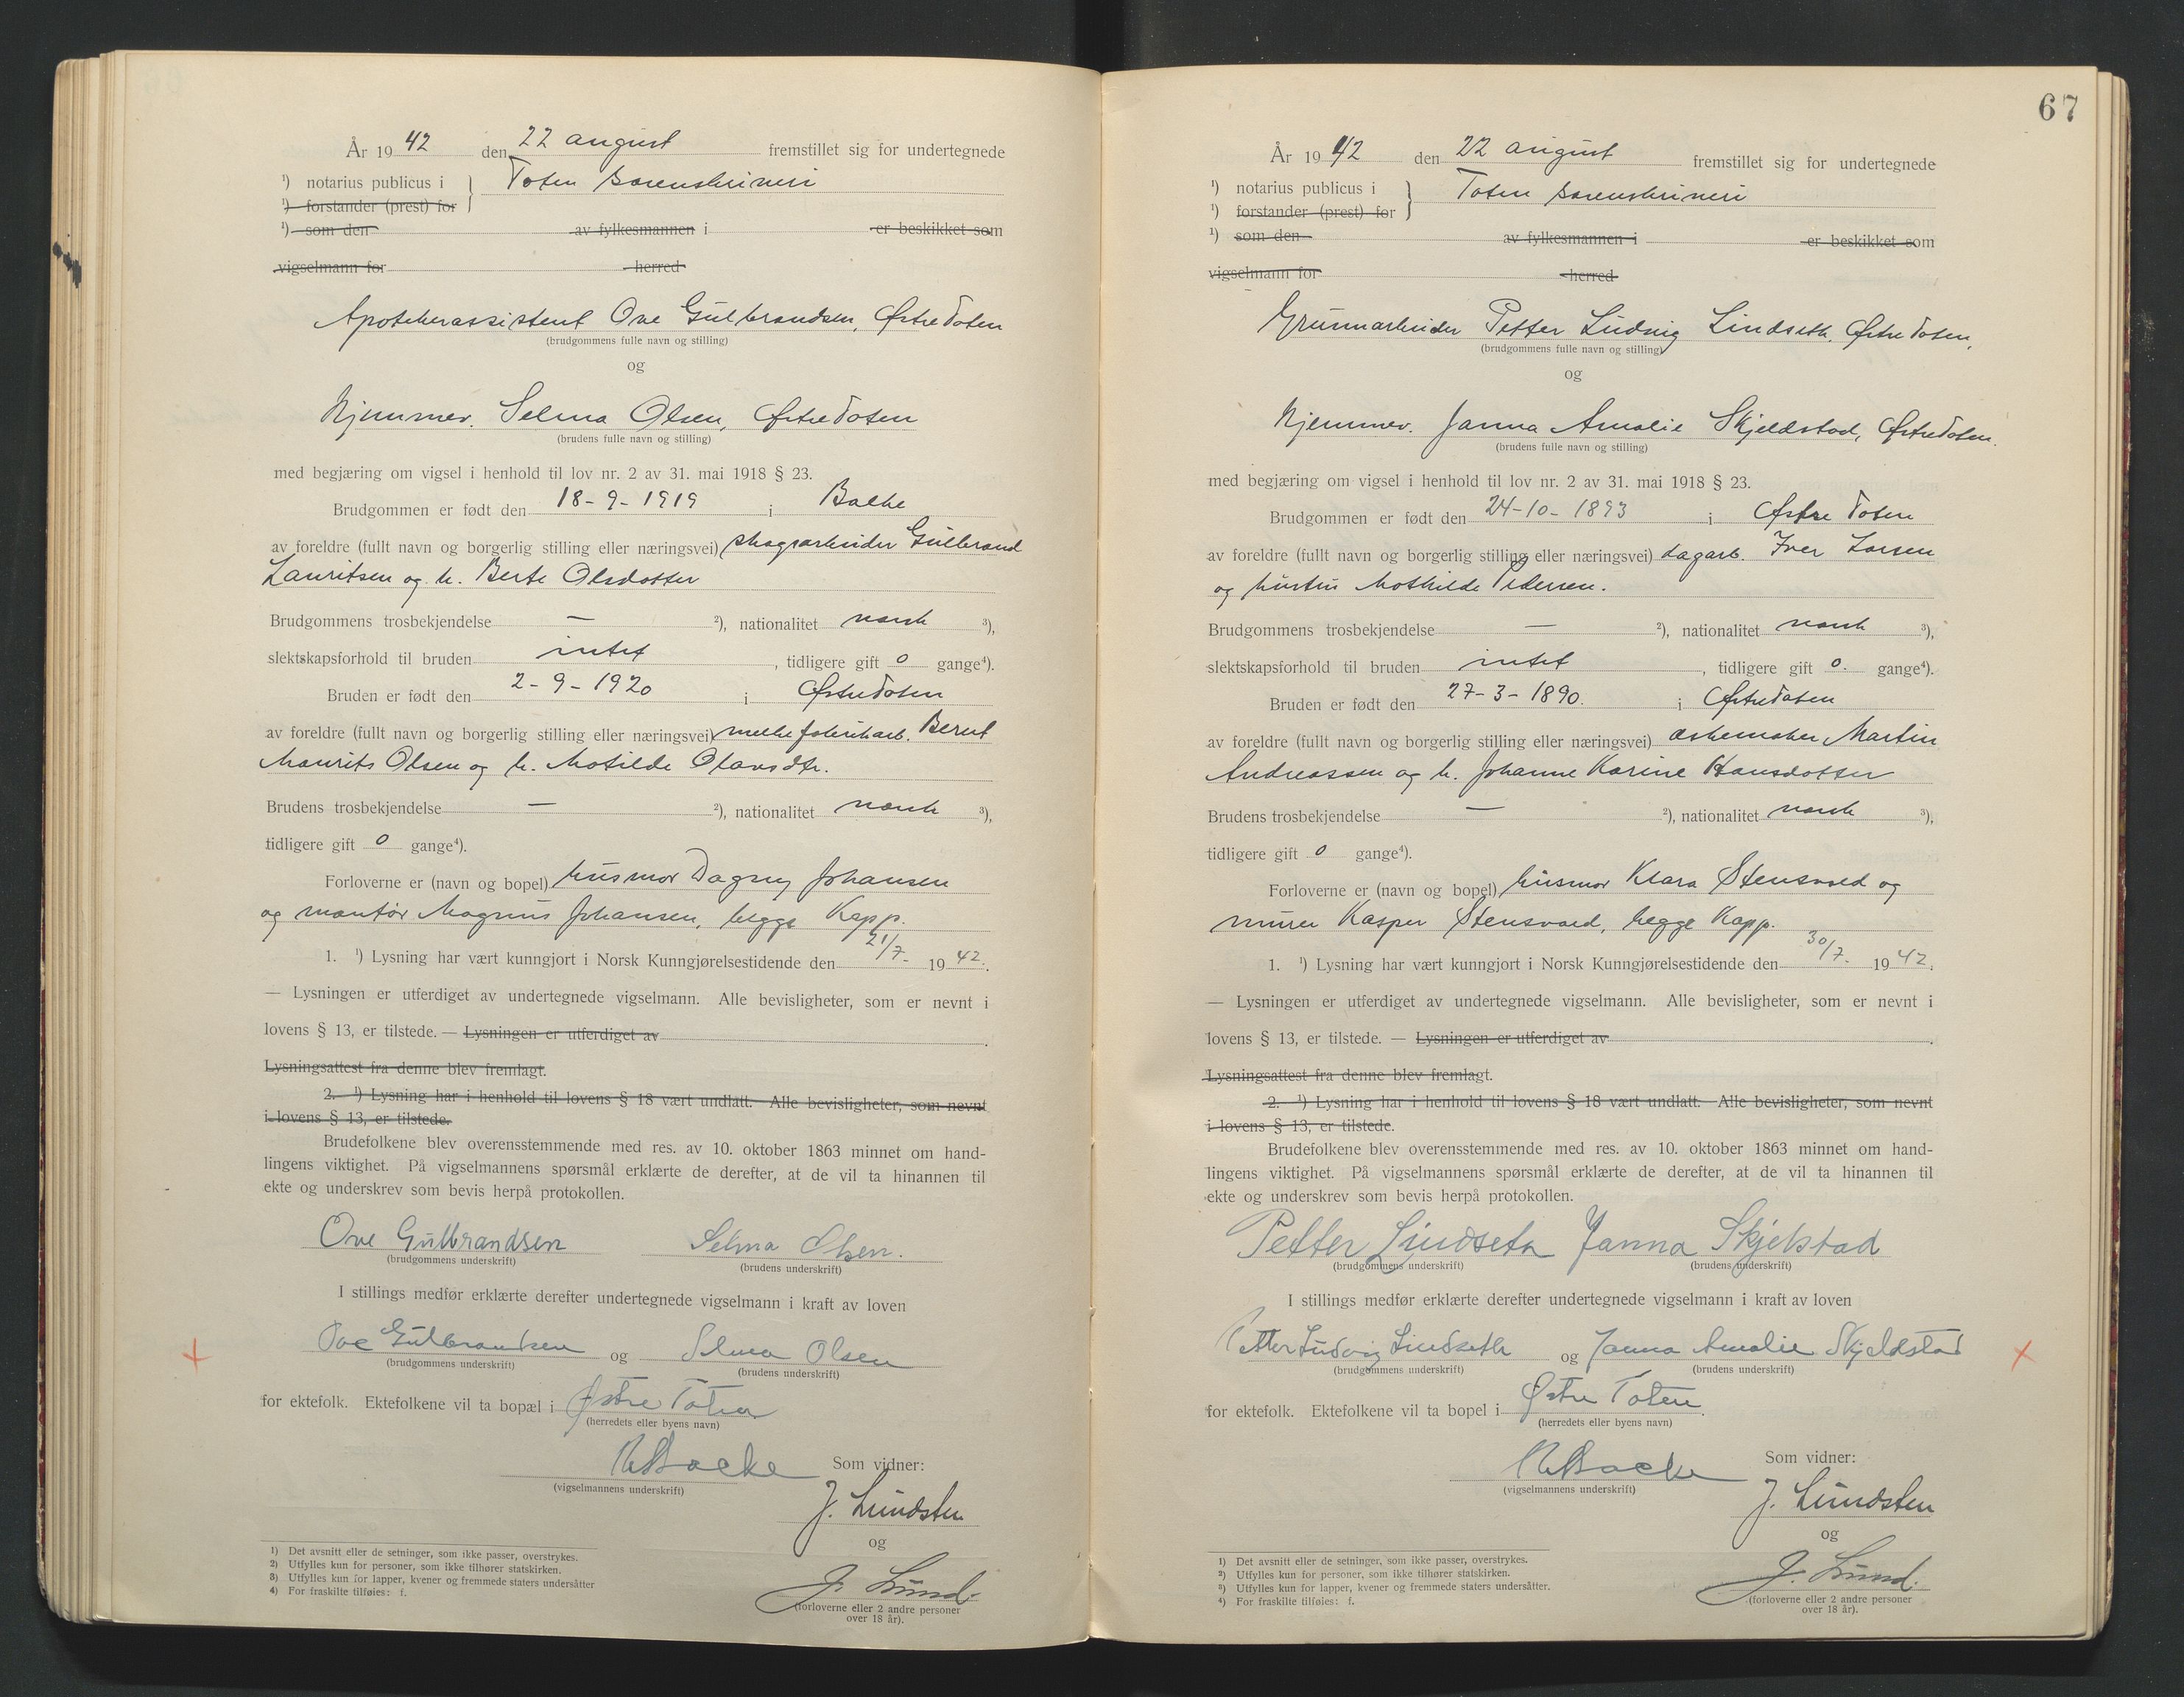 År 19 42 den 22 august fremstillet sig for undertegnede
¹) notarius publicus i } Toten sorenskriveri
¹) forstander (prest) for
¹) som den av fylkesmannen i er beskikket som
vigselmann for herred
Apotekerassistent Ove Gulbrandsen, Østre Toten
(brudgommens fulle navn og stilling)
og
Hjemmev. Selma Olsen, Østre Toten
(brudens fulle navn og stilling)
med begjæring om vigsel i henhold til lov nr. 2 av 31. mai 1918 § 23.
Brudgommen er født den 18-9-1919 i Balke
av foreldre (fullt navn og borgerlig stilling eller næringsvei) skogsarbeider Gulbrand
Lauritsen og h. Berte Olsdotter
Brudgommens trosbekjendelse — ²), nationalitet norsk ³),
slektskapsforhold til bruden intet, tidligere gift 0 gange⁴).
Bruden er født den 2-9-1920 i Østre Toten
av foreldre (fullt navn og borgerlig stilling eller næringsvei) melkefabrikarb. Bernt
Maurits Olsen og h. Matilde Olavsdtr.
Brudens trosbekjendelse — ²), nationalitet norsk ³),
tidligere gift 0 gange⁴).
Forloverne er (navn og bopel) husmor Dagny Johansen
og montør Magnus Johansen, begge Kapp.
1. ¹) Lysning har vært kunngjort i Norsk Kunngjørelsestidende den 21/7. 19 42.
— Lysningen er utferdiget av undertegnede vigselmann. Alle bevisligheter, som er nevnt i
lovens § 13, er tilstede. — Lysningen er utferdiget av .
Lysningsattest fra denne blev fremlagt.
2. ¹) Lysning har i henhold til lovens § 18 vært undlatt. Alle bevisligheter, som nevnt
i lovens § 13, er tilstede.
Brudefolkene blev overensstemmende med res. av 10. oktober 1863 minnet om hand-
lingens viktighet. På vigselmannens spørsmål erklærte de derefter, at de vil ta hinannen til
ekte og underskrev som bevis herpå protokollen.
Ove Gulbrandsen Selma Olsen.
(brudgommens underskrift) (brudens underskrift)
I stillings medfør erklærte derefter undertegnede vigselmann i kraft av loven
Ove Gulbrandsen og Selma Olsen
(brudgommens underskrift) (brudens underskrift)
for ektefolk. Ektefolkene vil ta bopæl i Østre Toten
(herredets eller byens navn)
Backe Som vidner:
(vigselmannens underskrift)
J. Lundsten
og
J. Lund.
(forloverne eller 2 andre personer
over 18 år).
1) Det avsnitt eller de setninger, som ikke passer, overstrykes.
2) Utfylles kun for personer, som ikke tilhører statskirken.
3) Utfylles kun for lapper, kvener og fremmede staters undersåtter
4) For fraskilte tilføies: f.
67
År 19 42 den 22 august fremstillet sig for undertegnede
¹) notarius publicus i } Toten sorenskriveri
¹) forstander (prest) for
¹) som den av fylkesmannen i er beskikket som
vigselmann for herred
Grunnarbeider Petter Ludvig Lindseth, Østre Toten,
(brudgommens fulle navn og stilling)
og
Hjemmev. Janna Amalie Skjeldstad, Østre Toten.
(brudens fulle navn og stilling)
med begjæring om vigsel i henhold til lov nr. 2 av 31. mai 1918 § 23.
Brudgommen er født den 24-10-1893 i Østre Toten
av foreldre (fullt navn og borgerlig stilling eller næringsvei) dagarb. Iver Larsen
og hustru Mathilde Pedersen.
Brudgommens trosbekjendelse — ²), nationalitet norsk ³),
slektskapsforhold til bruden intet, tidligere gift 0. gange⁴).
Bruden er født den 27-3-1890. i Østre Toten
av foreldre (fullt navn og borgerlig stilling eller næringsvei) Martin
Andreassen og h. Johanne Karine Hansdotter
Brudens trosbekjendelse — ²), nationalitet norsk ³),
tidligere gift 0 gange⁴).
Forloverne er (navn og bopel) husmor Klara Stensvold og
murer Kasper Stensvold, begge Kapp.
1. ¹) Lysning har vært kunngjort i Norsk Kunngjørelsestidende den 30/7. 19 42.
— Lysningen er utferdiget av undertegnede vigselmann. Alle bevisligheter, som er nevnt i
lovens § 13, er tilstede. — Lysningen er utferdiget av .
Lysningsattest fra denne blev fremlagt.
2. ¹) Lysning har i henhold til lovens § 18 vært undlatt. Alle bevisligheter, som nevnt
i lovens § 13, er tilstede.
Brudefolkene blev overensstemmende med res. av 10. oktober 1863 minnet om hand-
lingens viktighet. På vigselmannens spørsmål erklærte de derefter, at de vil ta hinannen til
ekte og underskrev som bevis herpå protokollen.
Petter Lindseth Janna Skjelstad
(brudgommens underskrift) (brudens underskrift)
I stillings medfør erklærte derefter undertegnede vigselmann i kraft av loven
Petter Ludvig Lindseth og Janna Amalie Skjeldstad
(brudgommens underskrift) (brudens underskrift)
for ektefolk. Ektefolkene vil ta bopel i Østre Toten.
(herredets eller byens navn)
Backe Som vidner:
(vigselmannens underskrift)
J. Lundsten
og
J. Lund.
(forloverne eller 2 andre personer
over 18 år).
1) Det avsnitt eller de setninger, som ikke passer, overstrykes.
2) Utfylles kun for personer, som ikke tilhører statskirken.
3) Utfylles kun for lapper, kvener og fremmede staters undersåtter.
4) For fraskilte tilføies: f.